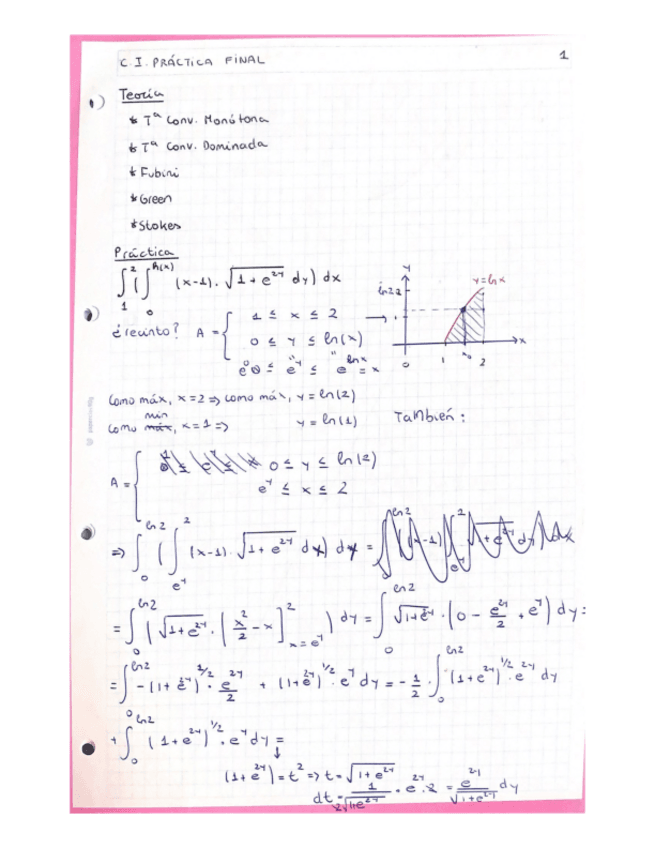 C.I. PRÁCTICA FINAL 1
Teoría
* Tª Conv. Monótona
* Tª Conv. Dominada
* Fubini
* Green
* Stokes
Práctica
∫₁² (∫₀^{ln(x)} (x-1) · √(1+e^{2y}) dy) dx
¿recinto? A = { 1 ≤ x ≤ 2
0 ≤ y ≤ ln(x)
e⁰ ≤ e^y ≤ e^{ln x} = x
y
ln 2
y = ln x
x
0 1 x₀ 2
Como máx, x = 2 => como máx, y = ln(2)
Como min, x = 1 => y = ln(1) También:
A = { 0 ≤ y ≤ ln(2)
e^y ≤ x ≤ 2
=> ∫₀^{ln 2} (∫_{e^y}^2 (x-1) · √(1+e^{2y}) dx) dy =
= ∫₀^{ln 2} (√(1+e^{2y}) · (x²/2 - x]_{x=e^y}^2) dy = ∫₀^{ln 2} √(1+e^{2y}) · (0 - e^{2y}/2 + e^y) dy =
= ∫₀^{ln 2} -(1+e^{2y})^{1/2} · e^{2y}/2 + (1+e^{2y})^{1/2} · e^y dy = -1/2 · ∫₀^{ln 2} (1+e^{2y})^{1/2} · e^{2y} dy
+ ∫₀^{ln 2} (1+e^{2y})^{1/2} · e^y dy =
↓
(1+e^{2y}) = t² => t = √(1+e^{2y})
dt = 1/(2√(1+e^{2y})) · e^{2y} · 2 = e^{2y}/√(1+e^{2y}) dy